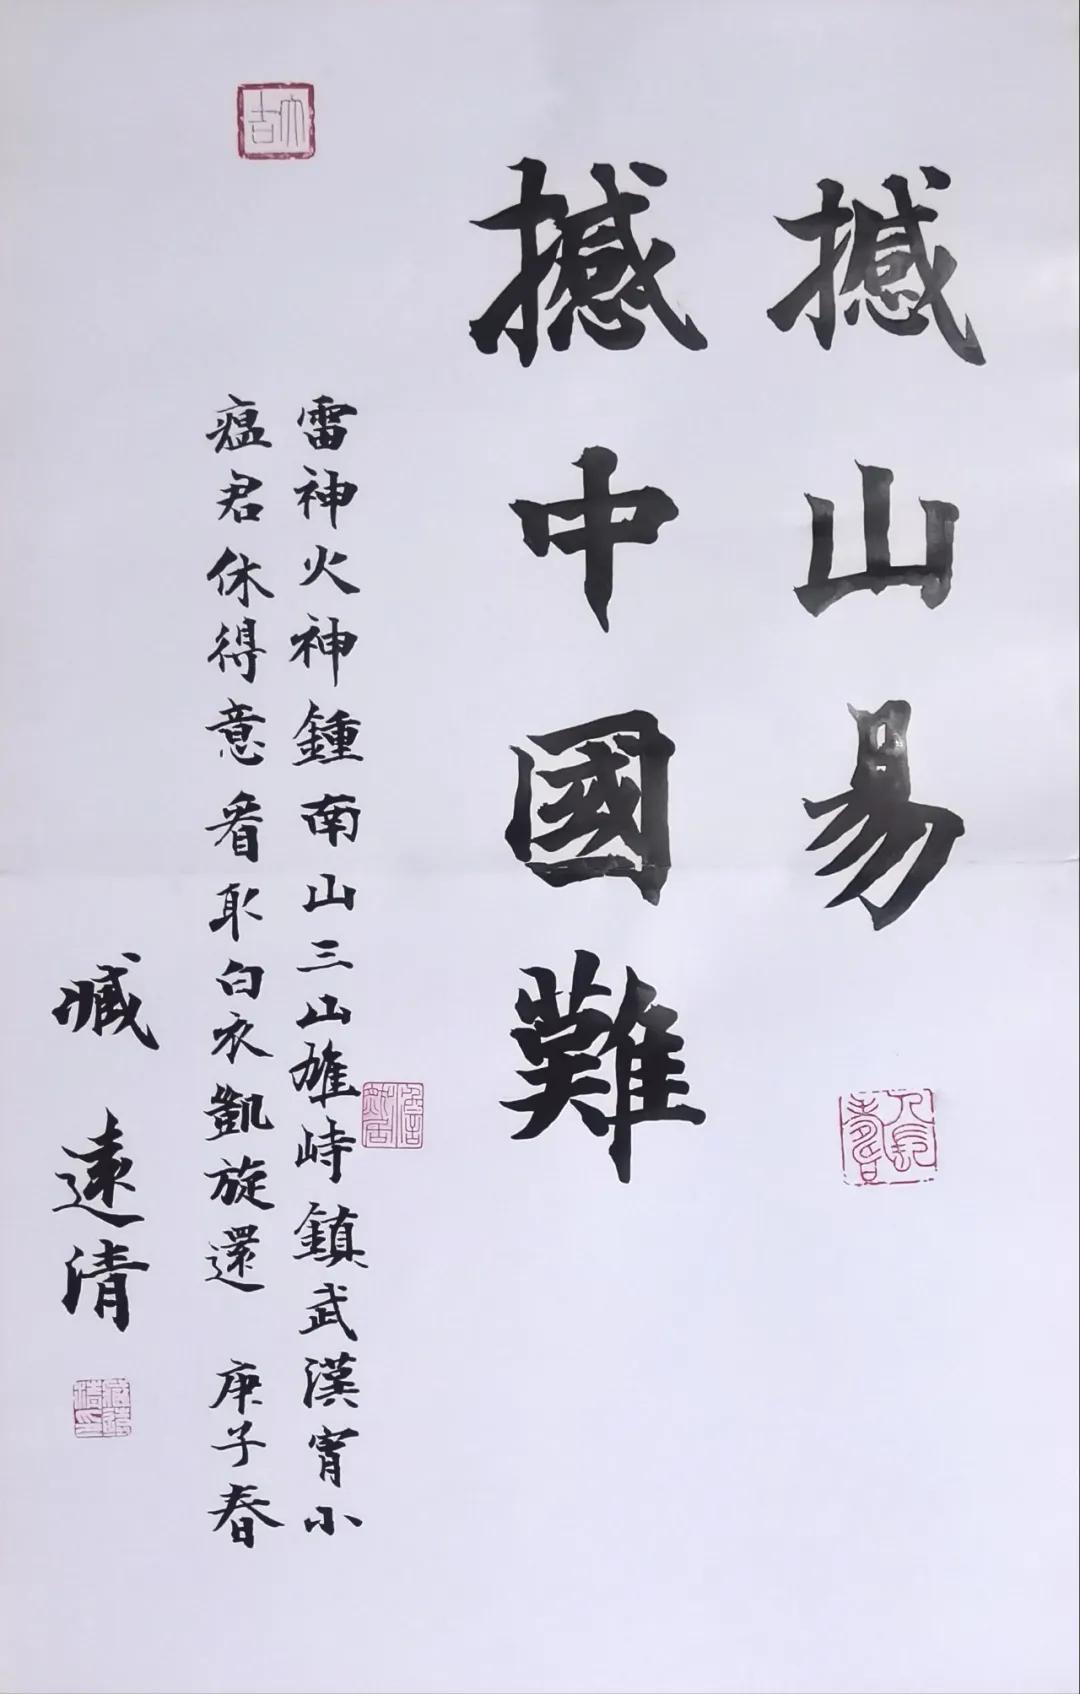 撼山易
撼中國難
雷神火神鍾南山三山雄峙鎮武漢宵小
瘟君休得意看取白衣凱旋還 庚子春
臧遠清
大吉